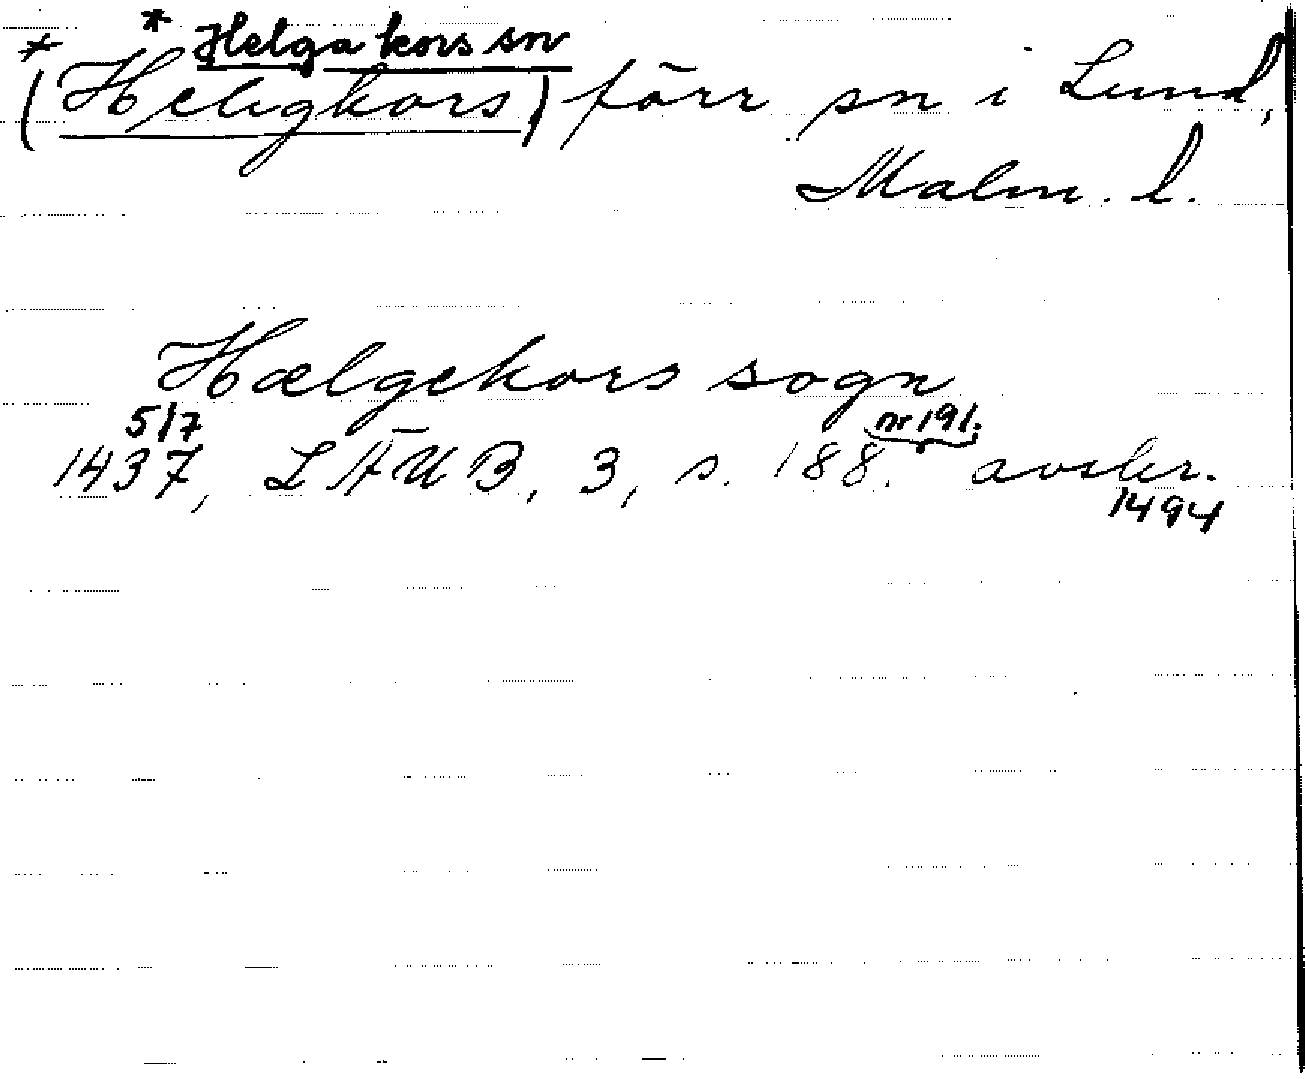 * Helga kors sn
* (Heligkors) förr sn i Lund,
Malm. l.
Hælgekors sogn
5/7 nr 191.
1437, LÄUB, 3, s. 188. avskr.
1494